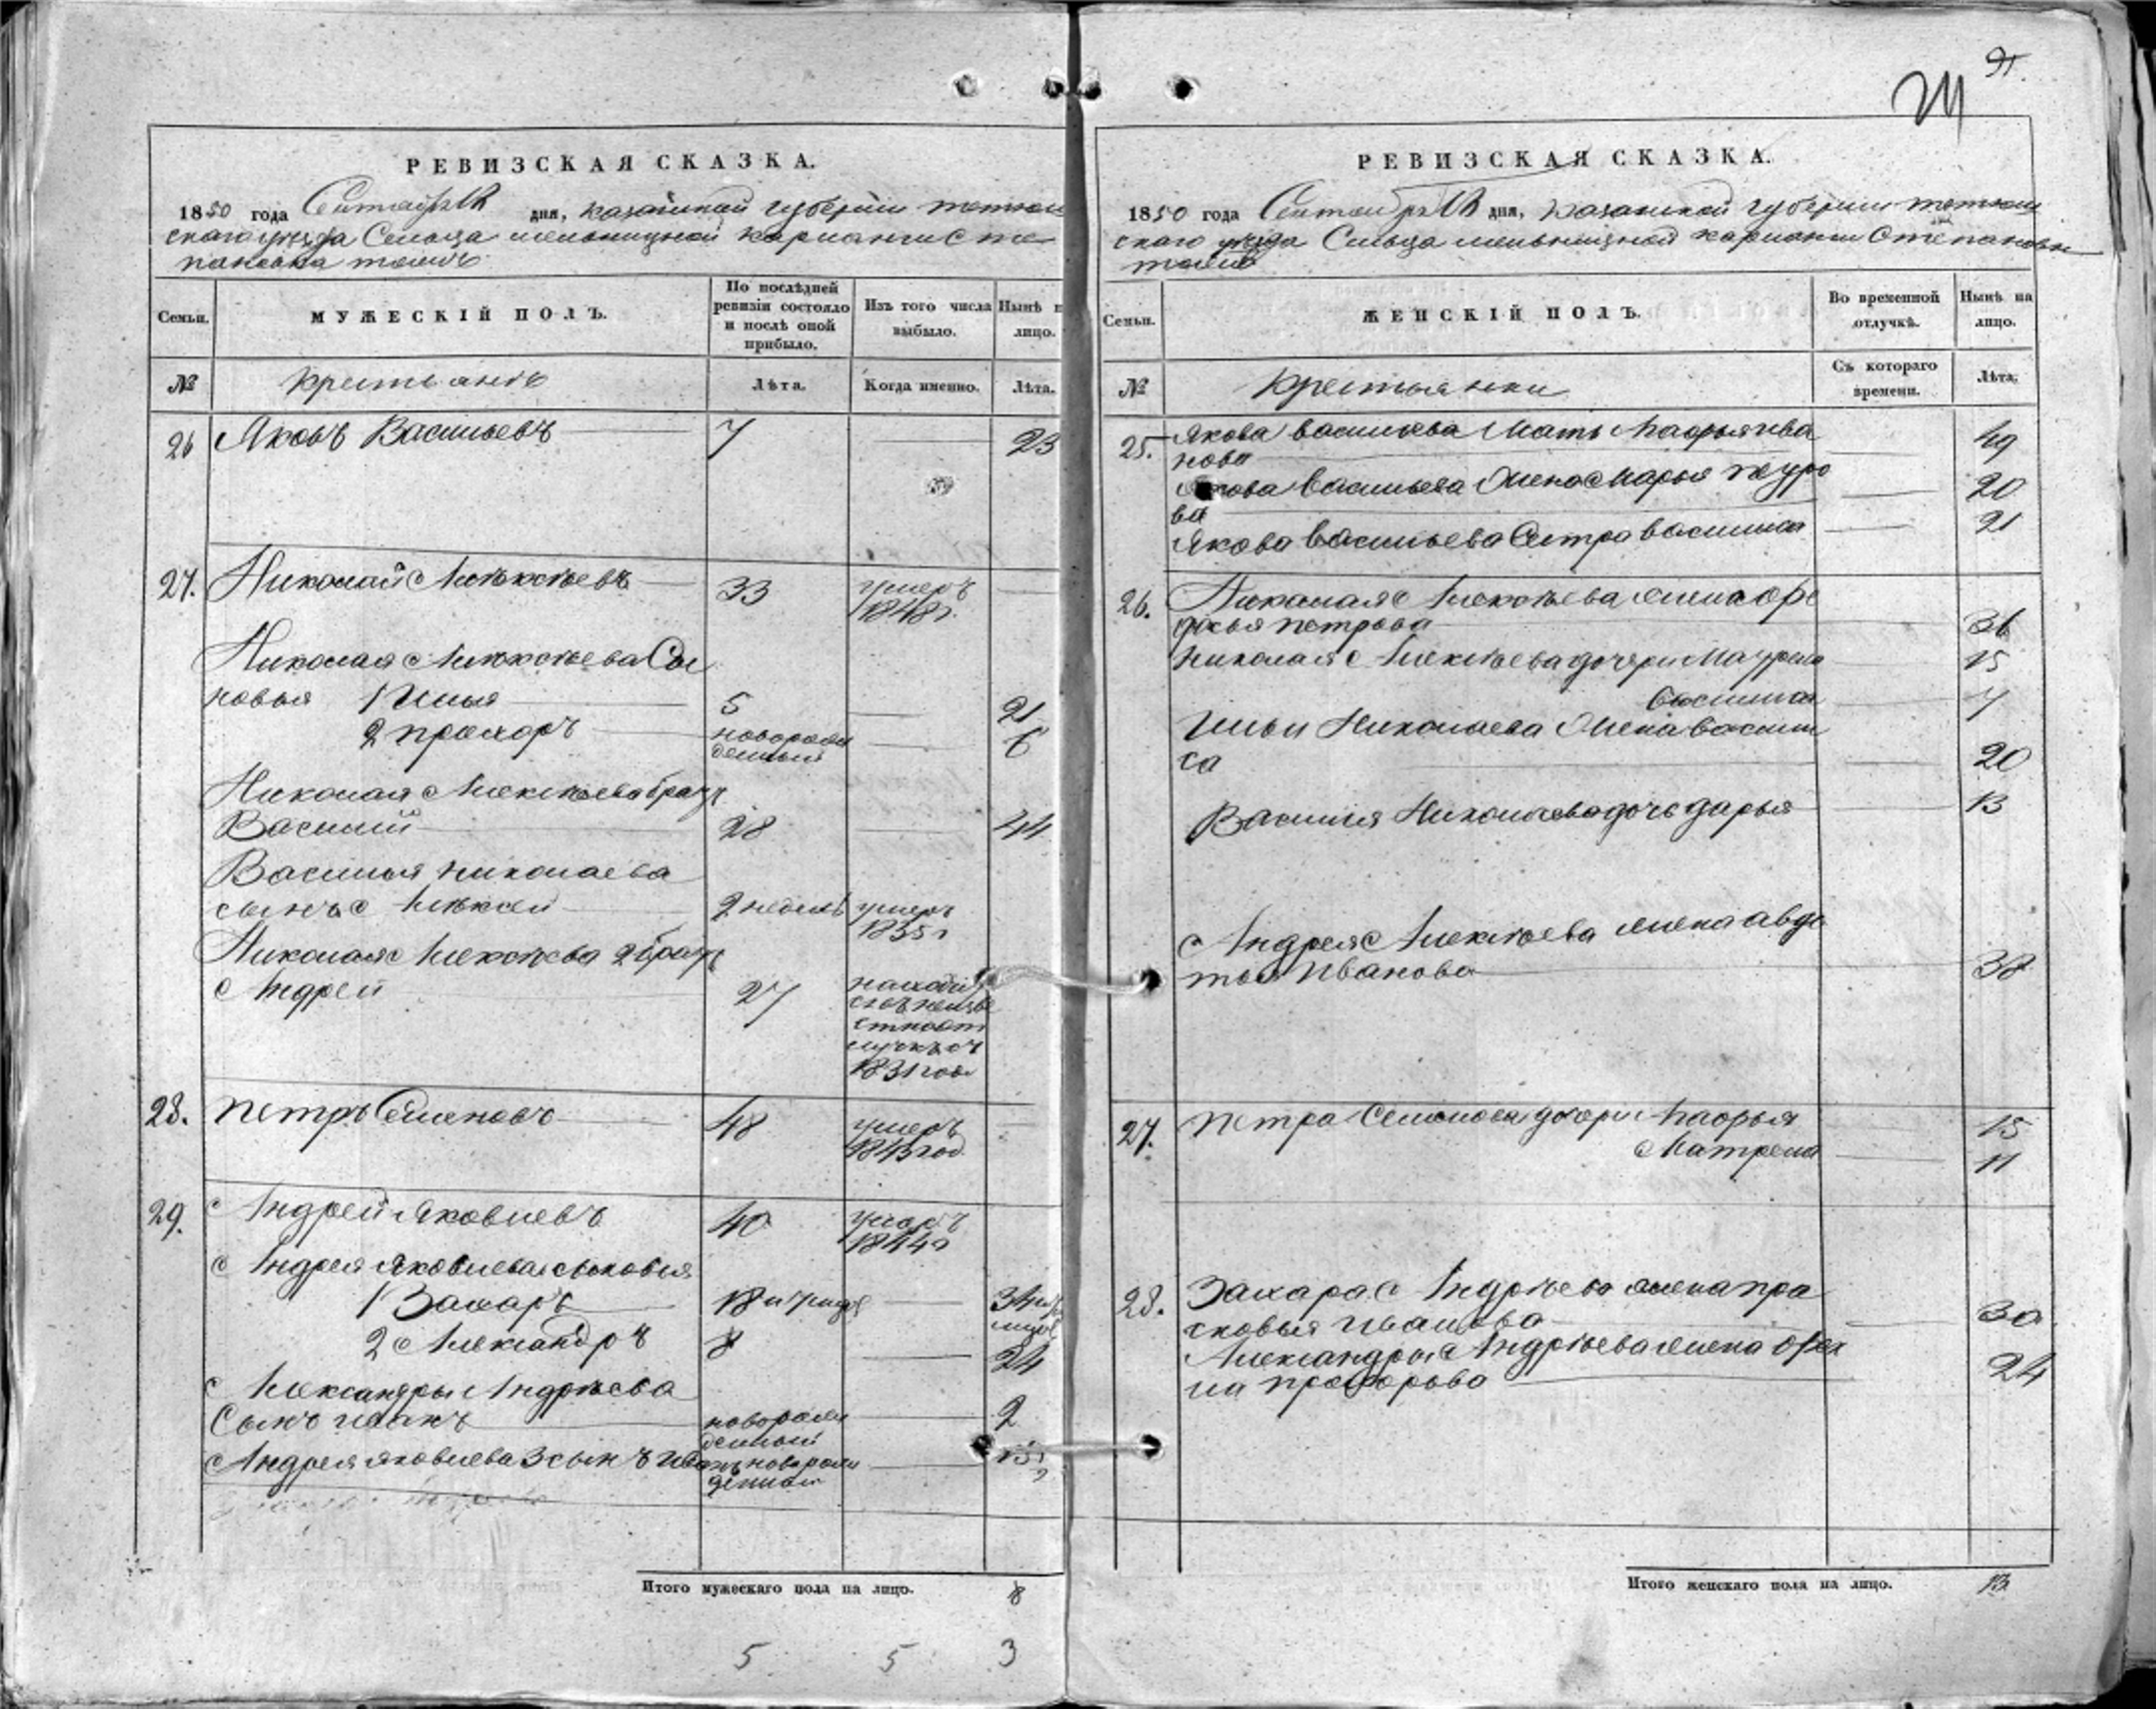 РЕВИЗСКАЯ СКАЗКА.
1850 года Сентября дня, Казанской губернии тетюш
скаго уезда Сельца мельничной
тожъ
Семьи.
МУЖЕСКІЙ ПОЛЪ.
По послѣдней ревизіи состояло и послѣ оной прибыло.
Изъ того числа выбыло.
Нынѣ на лицо.
№
Крестьянъ
Лѣта.
Когда именно.
Лѣта.
26 Яковъ Васильевъ 7 23
27. Николай Алѣксѣевъ 33 умеръ
1848г.
Николая Алѣксѣева Сы
новья 1 Илья 5 21
2 прохоръ новорож 6
денный
Николая Алексѣева братъ
Василий 28 44
Василья Николаева
сынъ Алѣксей 2 недель умеръ
1835г
Николая Алексѣева 2 братъ
Андрей 27 находит
ся в неизве
стной от
лучкъ съ
1831 года
28. Петръ Семеновъ 48 умеръ
1843 год.
29. Андрей Яковлевъ 40 умеръ
1844г
Андрея Яковлева сыновья
1 Захаръ 18 34
2 Александръ 8 24
Александры Андрѣева
Сынъ Иванъ новорож 2
денный
Андрея Яковлева 3 сынъ Иванъ новорож 13
денный
Итого мужескаго пола на лицо. 8
5 5 3
РЕВИЗСКАЯ СКАЗКА.
1850 года Сентября дня, Казанской губернии тетюш
скаго уезда Сельца мельничной Степановка
тожъ
Семьи.
ЖЕНСКІЙ ПОЛЪ.
Во временной отлучкѣ.
Нынѣ на лицо.
№
Крестьянки
Съ котораго времени.
Лѣта.
25. Якова Васильева Мать Марья Ива
нова 49
Якова Васильева Жена Марья
ва 20
Якова Васильева Сестра Василиса 21
26. Николая Алексѣева жена
Петрова 36
Николая Алексѣева дочери Маурена 15
Василиса 7
Ильи Николаева Жена Васили
са 20
Василия Николаева дочь Дарья 13
Андрея Алексѣева жена Авдо
тья Иванова 38
27. Петра Семенова дочери Марья 15
Матрена 11
28. Захара Андрѣева жена Пра
сковья Иванова 30
Александры Андрѣева жена
на Прохорова 24
Итого женскаго пола на лицо. 13